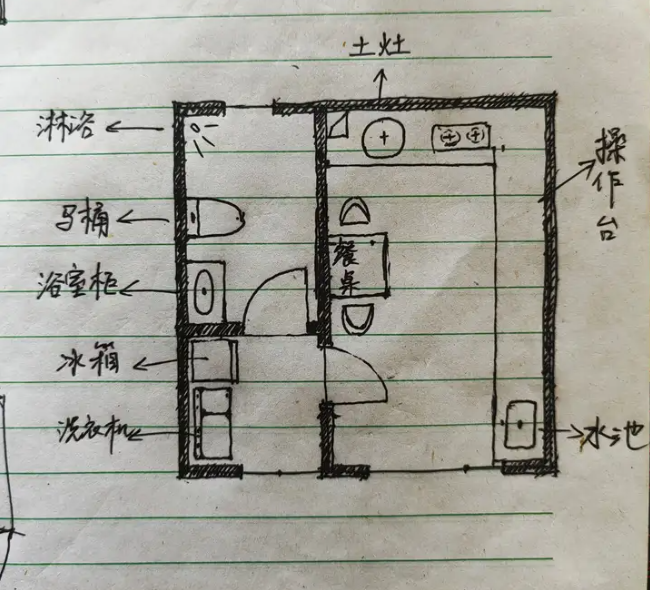 土灶
淋浴
操作台
马桶
餐桌
浴室柜
冰箱
洗衣机
水池